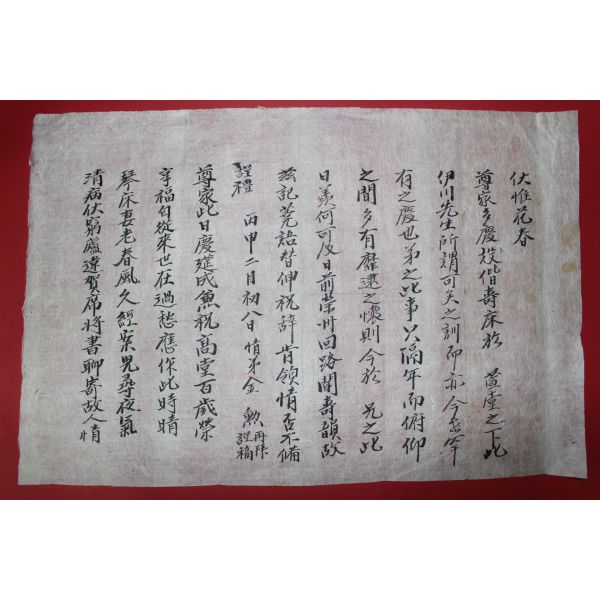 伏惟花春
尊家多慶設偕壽床於 萱堂之下此
伊川先生所謂可矣之訓而亦今世罕
有之慶也弟之此事只隔年而俯仰
之間多有靡逮之懷則今於 兄之此
日羨何可及日前榮州回路聞壽韻故
玆記荒語替伸祝辞肯領情否不備
謹禮 丙申二月初八日情弟金 勲 再拜 謹稿
尊家此日慶筵成兼祝高堂百歲榮
享福自從來世在過愁應作此時晴
琴床妻老春風久經案兒尋夜氣
清病伏窮廬違賀席將書聊寄故人情